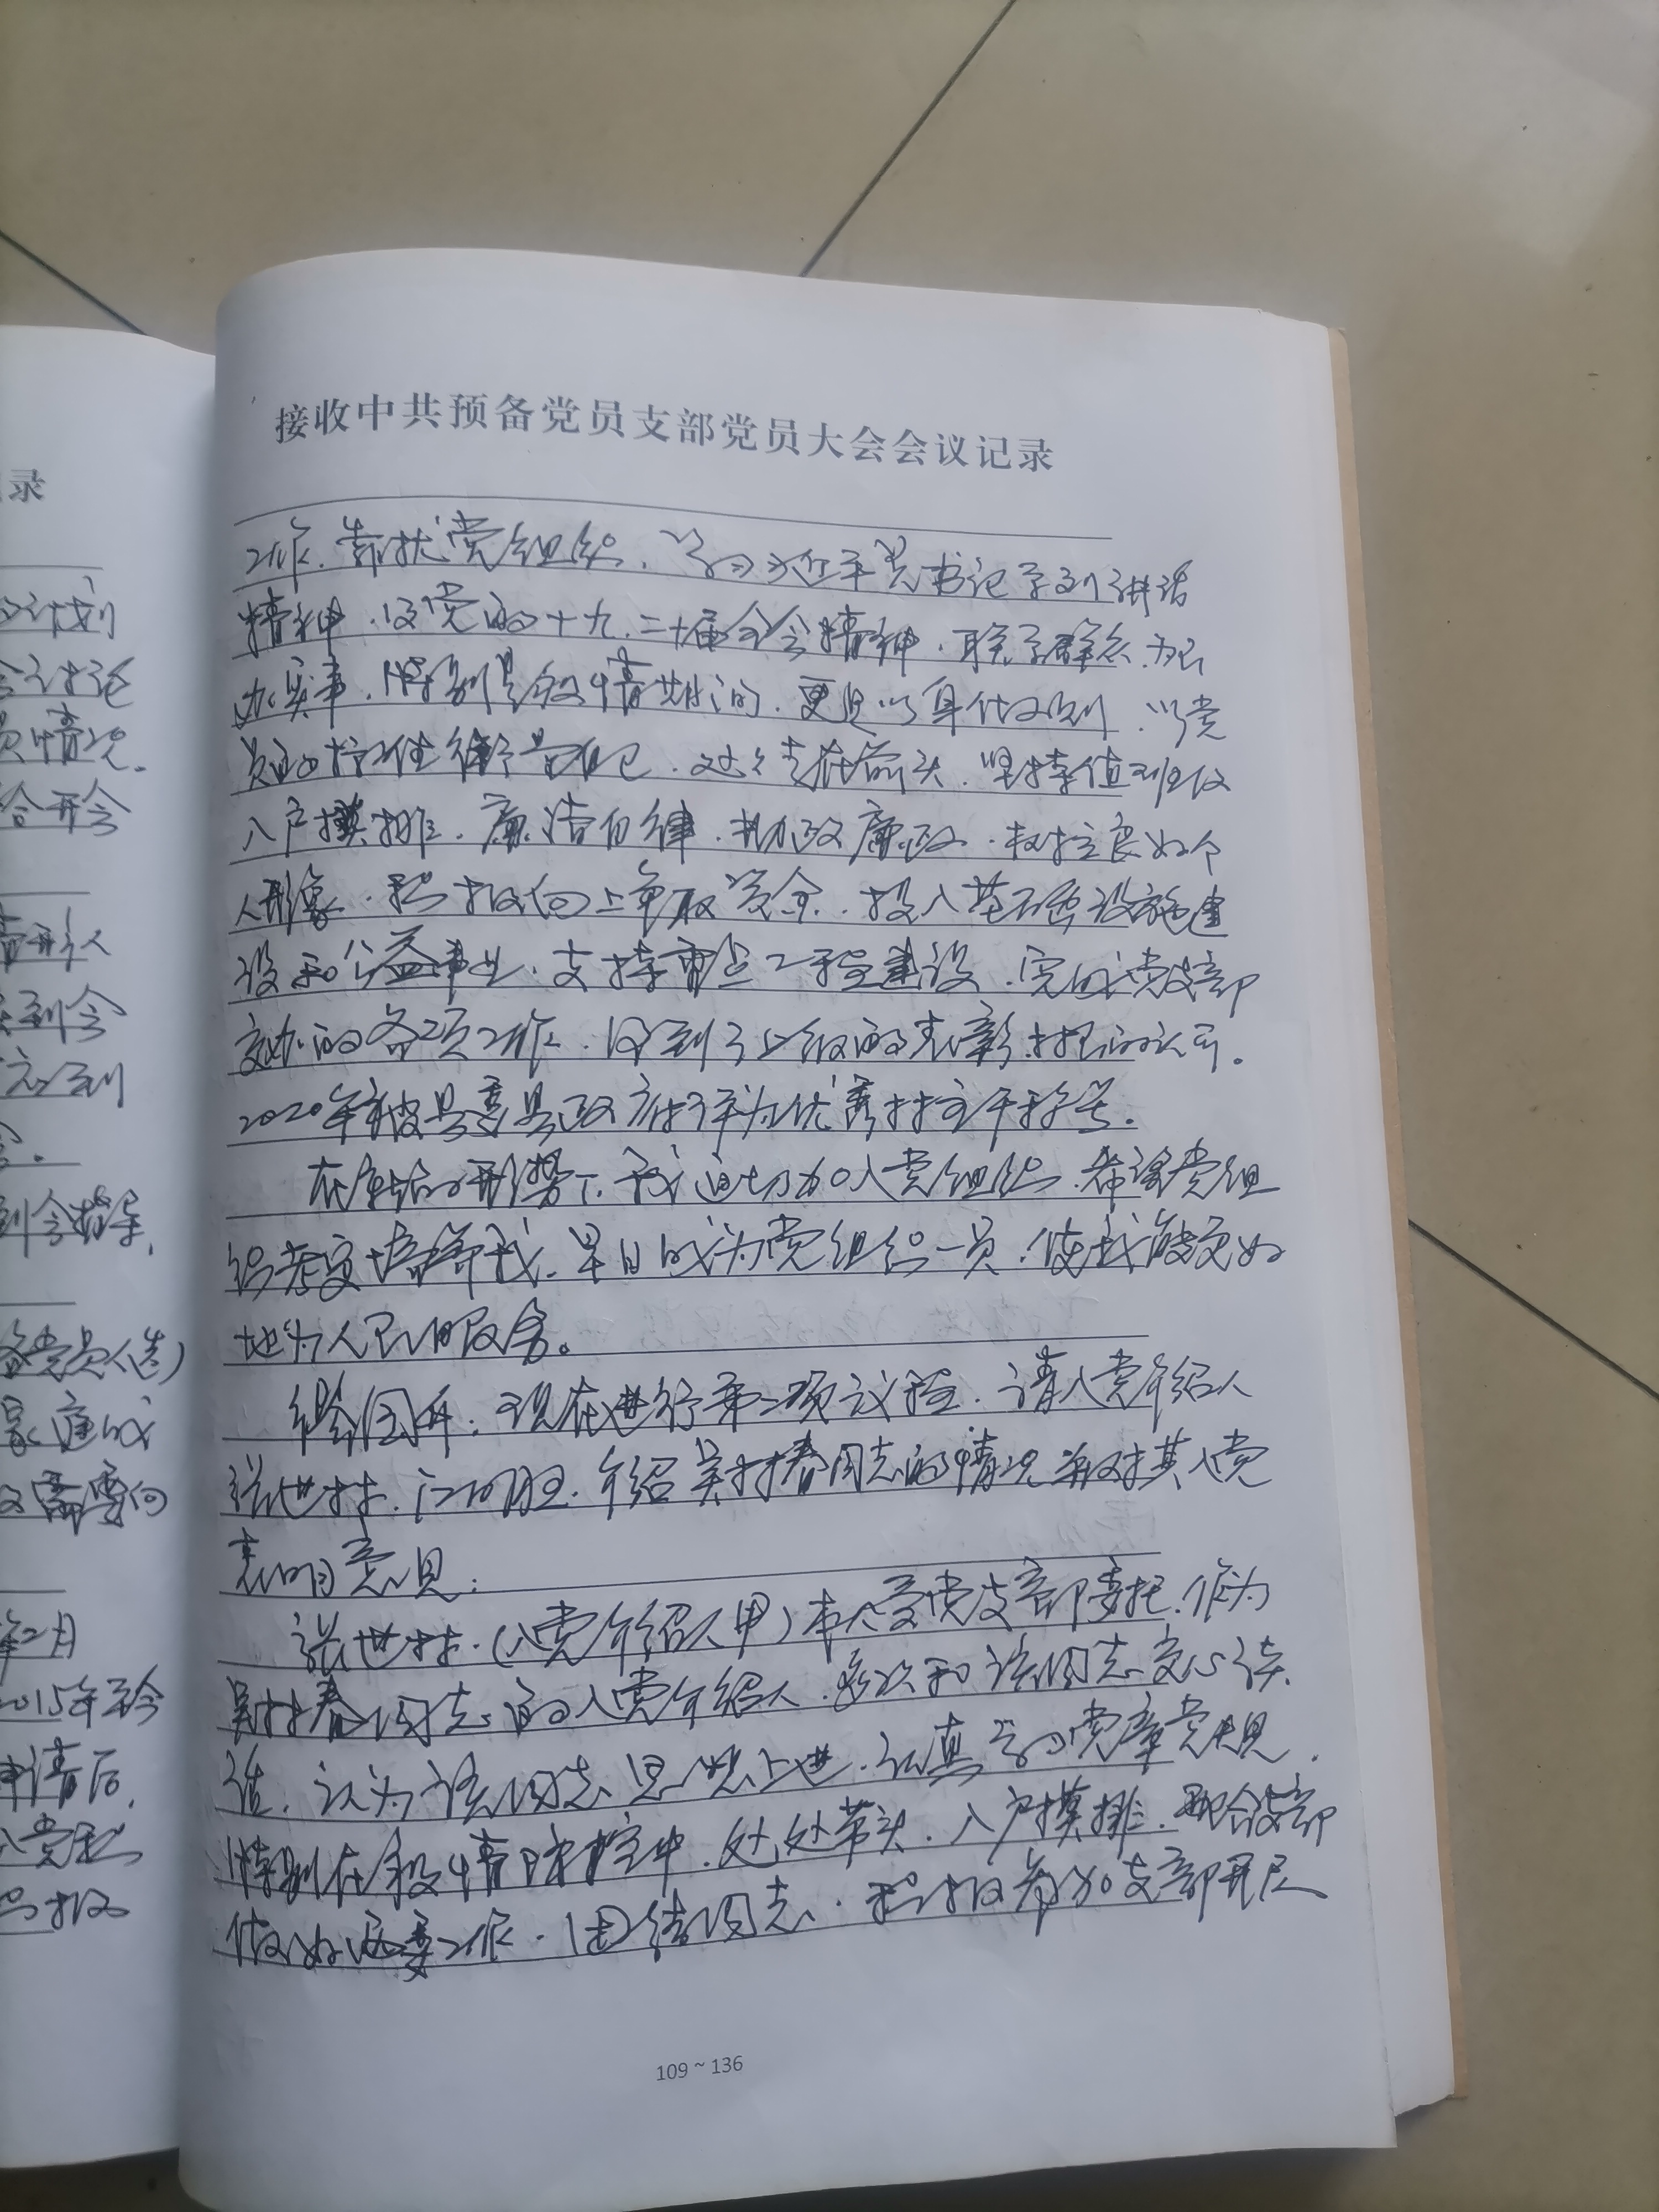 录
计划
会讨论
员情况。
合开会
到会
到会指导，
备党员（
家庭成
需要向
年2月
2015年至今
申请后，
入党积
积极
接收中共预备党员支部党员大会会议记录
工作，靠拢党组织，学习习近平总书记系列讲话
精神，及党的十九、二十届全会精神，联系群众，为民
办实事，特别是疫情期间，更是以身作则，以党
员的标准衡量自己，处处走在前头，坚持值班及
入户摸排，廉洁自律，执政廉政，树立良好个
人形象，积极向上争取资金，投入基础设施建
设和公益事业，支持重点工程建设，完成党支部
交办的各项工作，得到了上级的表彰，的认可。
2020年被县委县政府评为优秀村主干称号。
在的形势下，我迫切加入党组织，希望党组
织考察培养我，早日成为党组织一员，使我能更好
地为人民服务。
：现在进行第二项议程，请入党介绍人
张世林、江，介绍吴村春同志的情况并对其入党
表明意见：
张世林：（入党介绍人甲）本人受党支部委托，作为
吴村春同志的入党介绍人，多次和该同志交心谈
话，认为该同志思想上进，认真学习党章党规，
特别在疫情防控中，处处带头，入户摸排，配合支部
做好工作，团结同志，积极参加支部开展
109~136